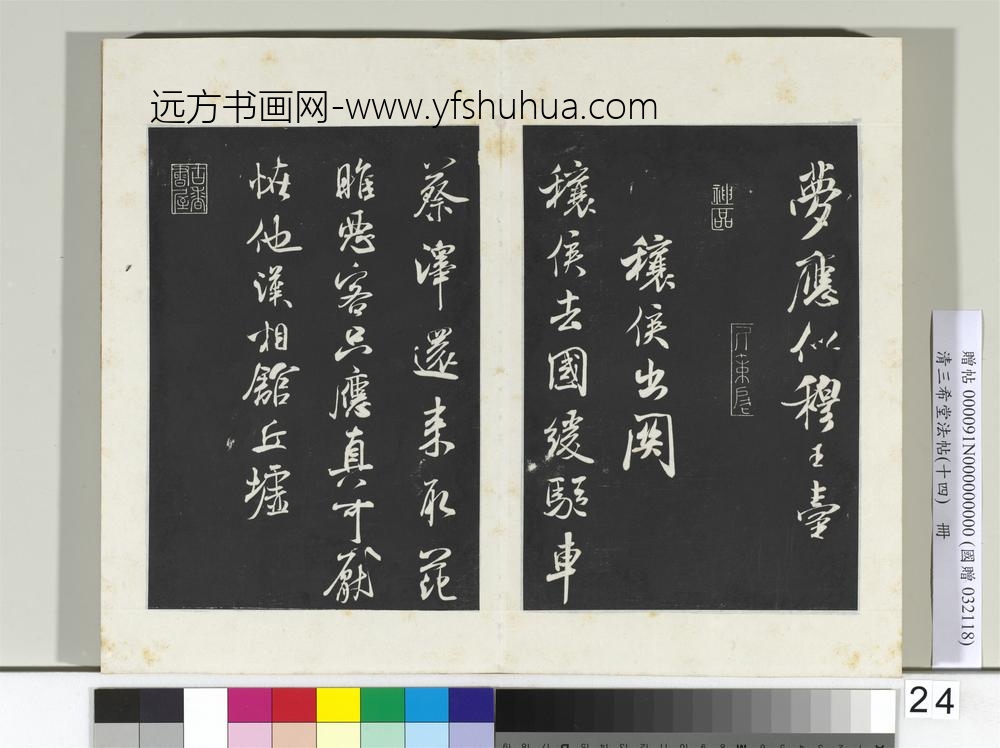 远方书画网-www.yfshuhua.com
夢應似穆王臺
神品
穰侯出関
穰侯去國緩驅車
蔡澤還来取范
睢惡客只應真可厭
恠他漢相舘丘墟
古香書屋
贈帖 000091N000000000 (國贈 032118)
清三希堂法帖(十四) 冊
24